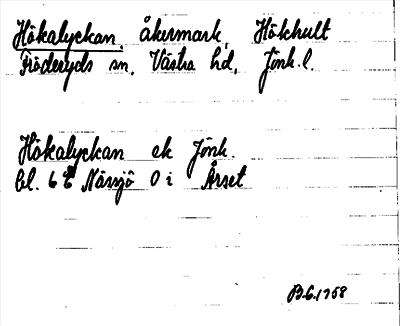 Hökalyckan, åkermark, Hökhult
Fröderyds sn, Västra hd, Jönk. l.
Hökalyckan ek Jönk.
bl. 6 E Nässjö O i Årset
B.G. 1958